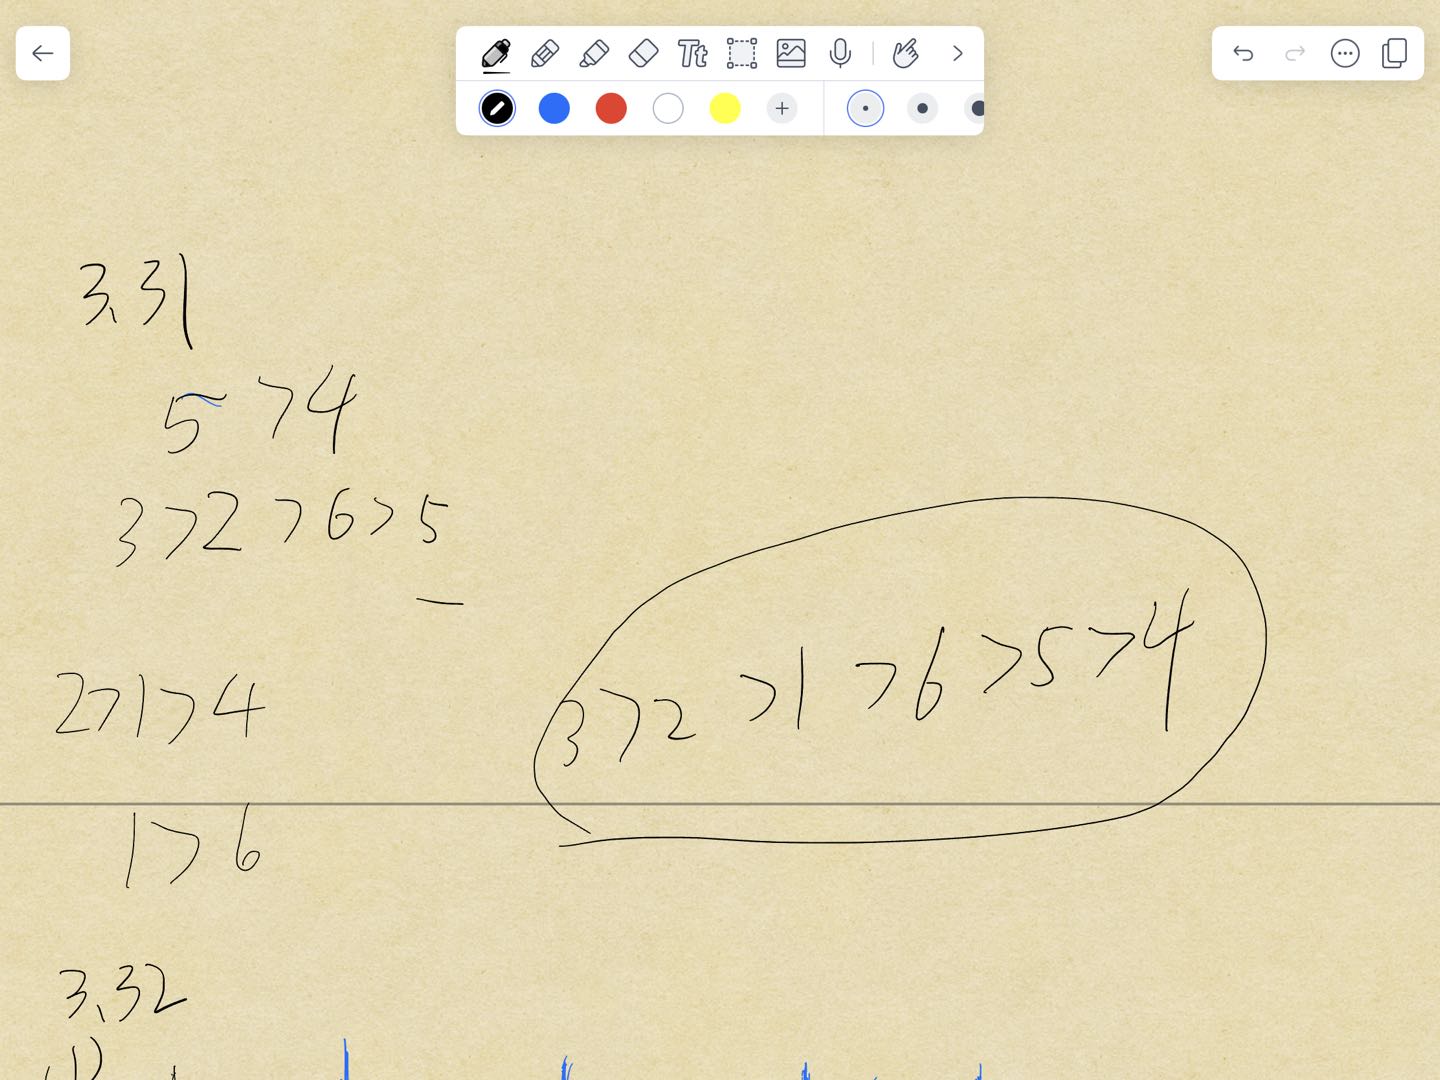 Tt
3.31
5 > 4
3 > 2 > 6 > 5
2 > 1 > 4
3 > 2 > 1 > 6 > 5 > 4
1 > 6
3.32
1)